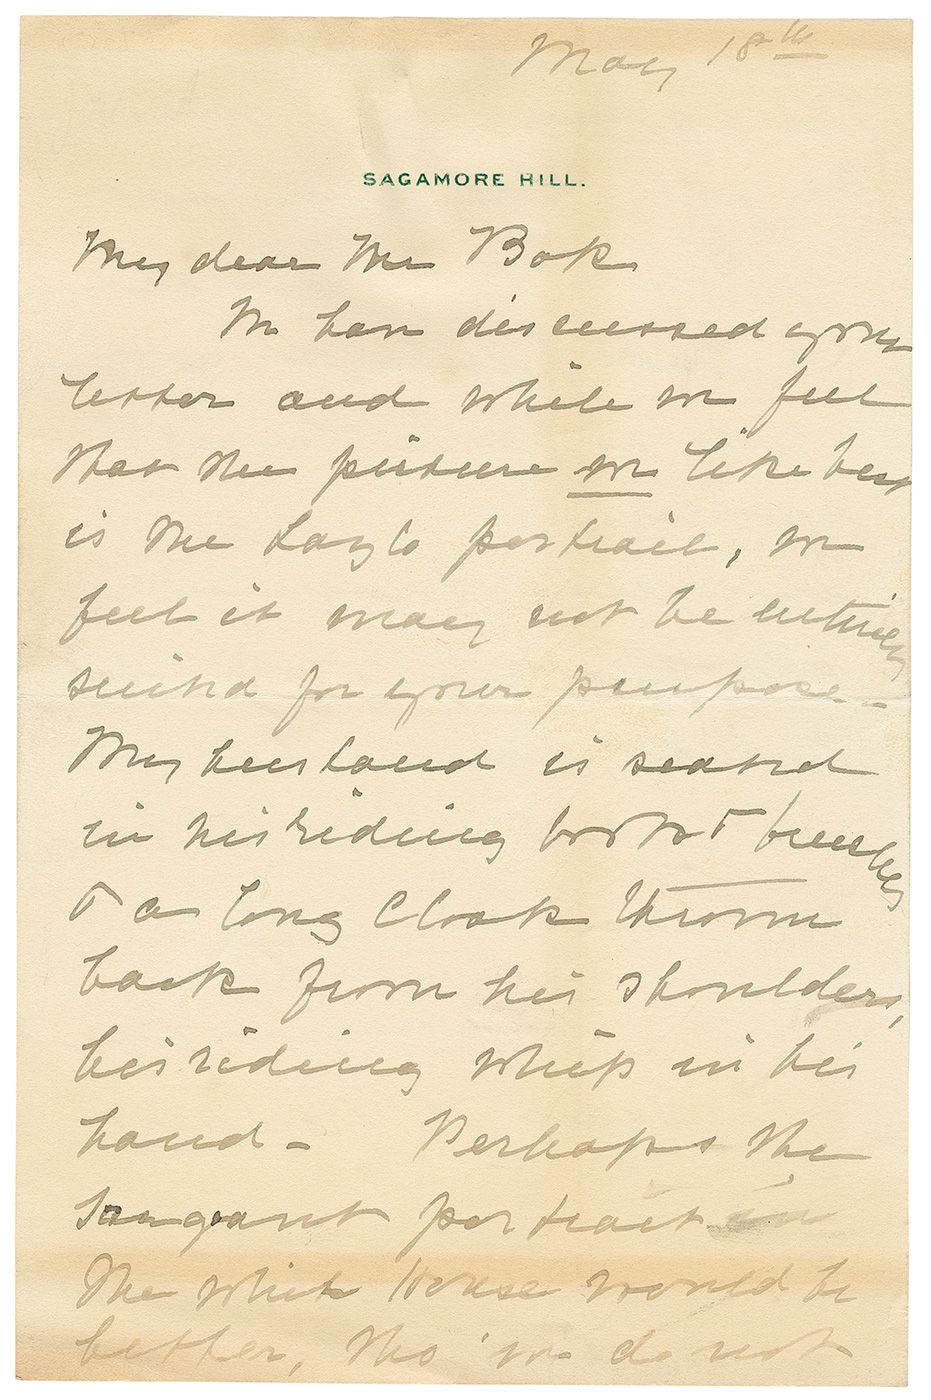 May 18th
SAGAMORE HILL.
My dear Mr Bok
We have discussed your
letter and while we feel
that the picture we like best
is the Lazlo portrait, we
feel it may not be entirely
suited for your purpose -
My husband is seated
in his riding boots & breeches
& a long cloak thrown
back from his shoulders,
his riding whip in his
hand - Perhaps the
Sargant portrait in
the White House would be
better, tho' we do not